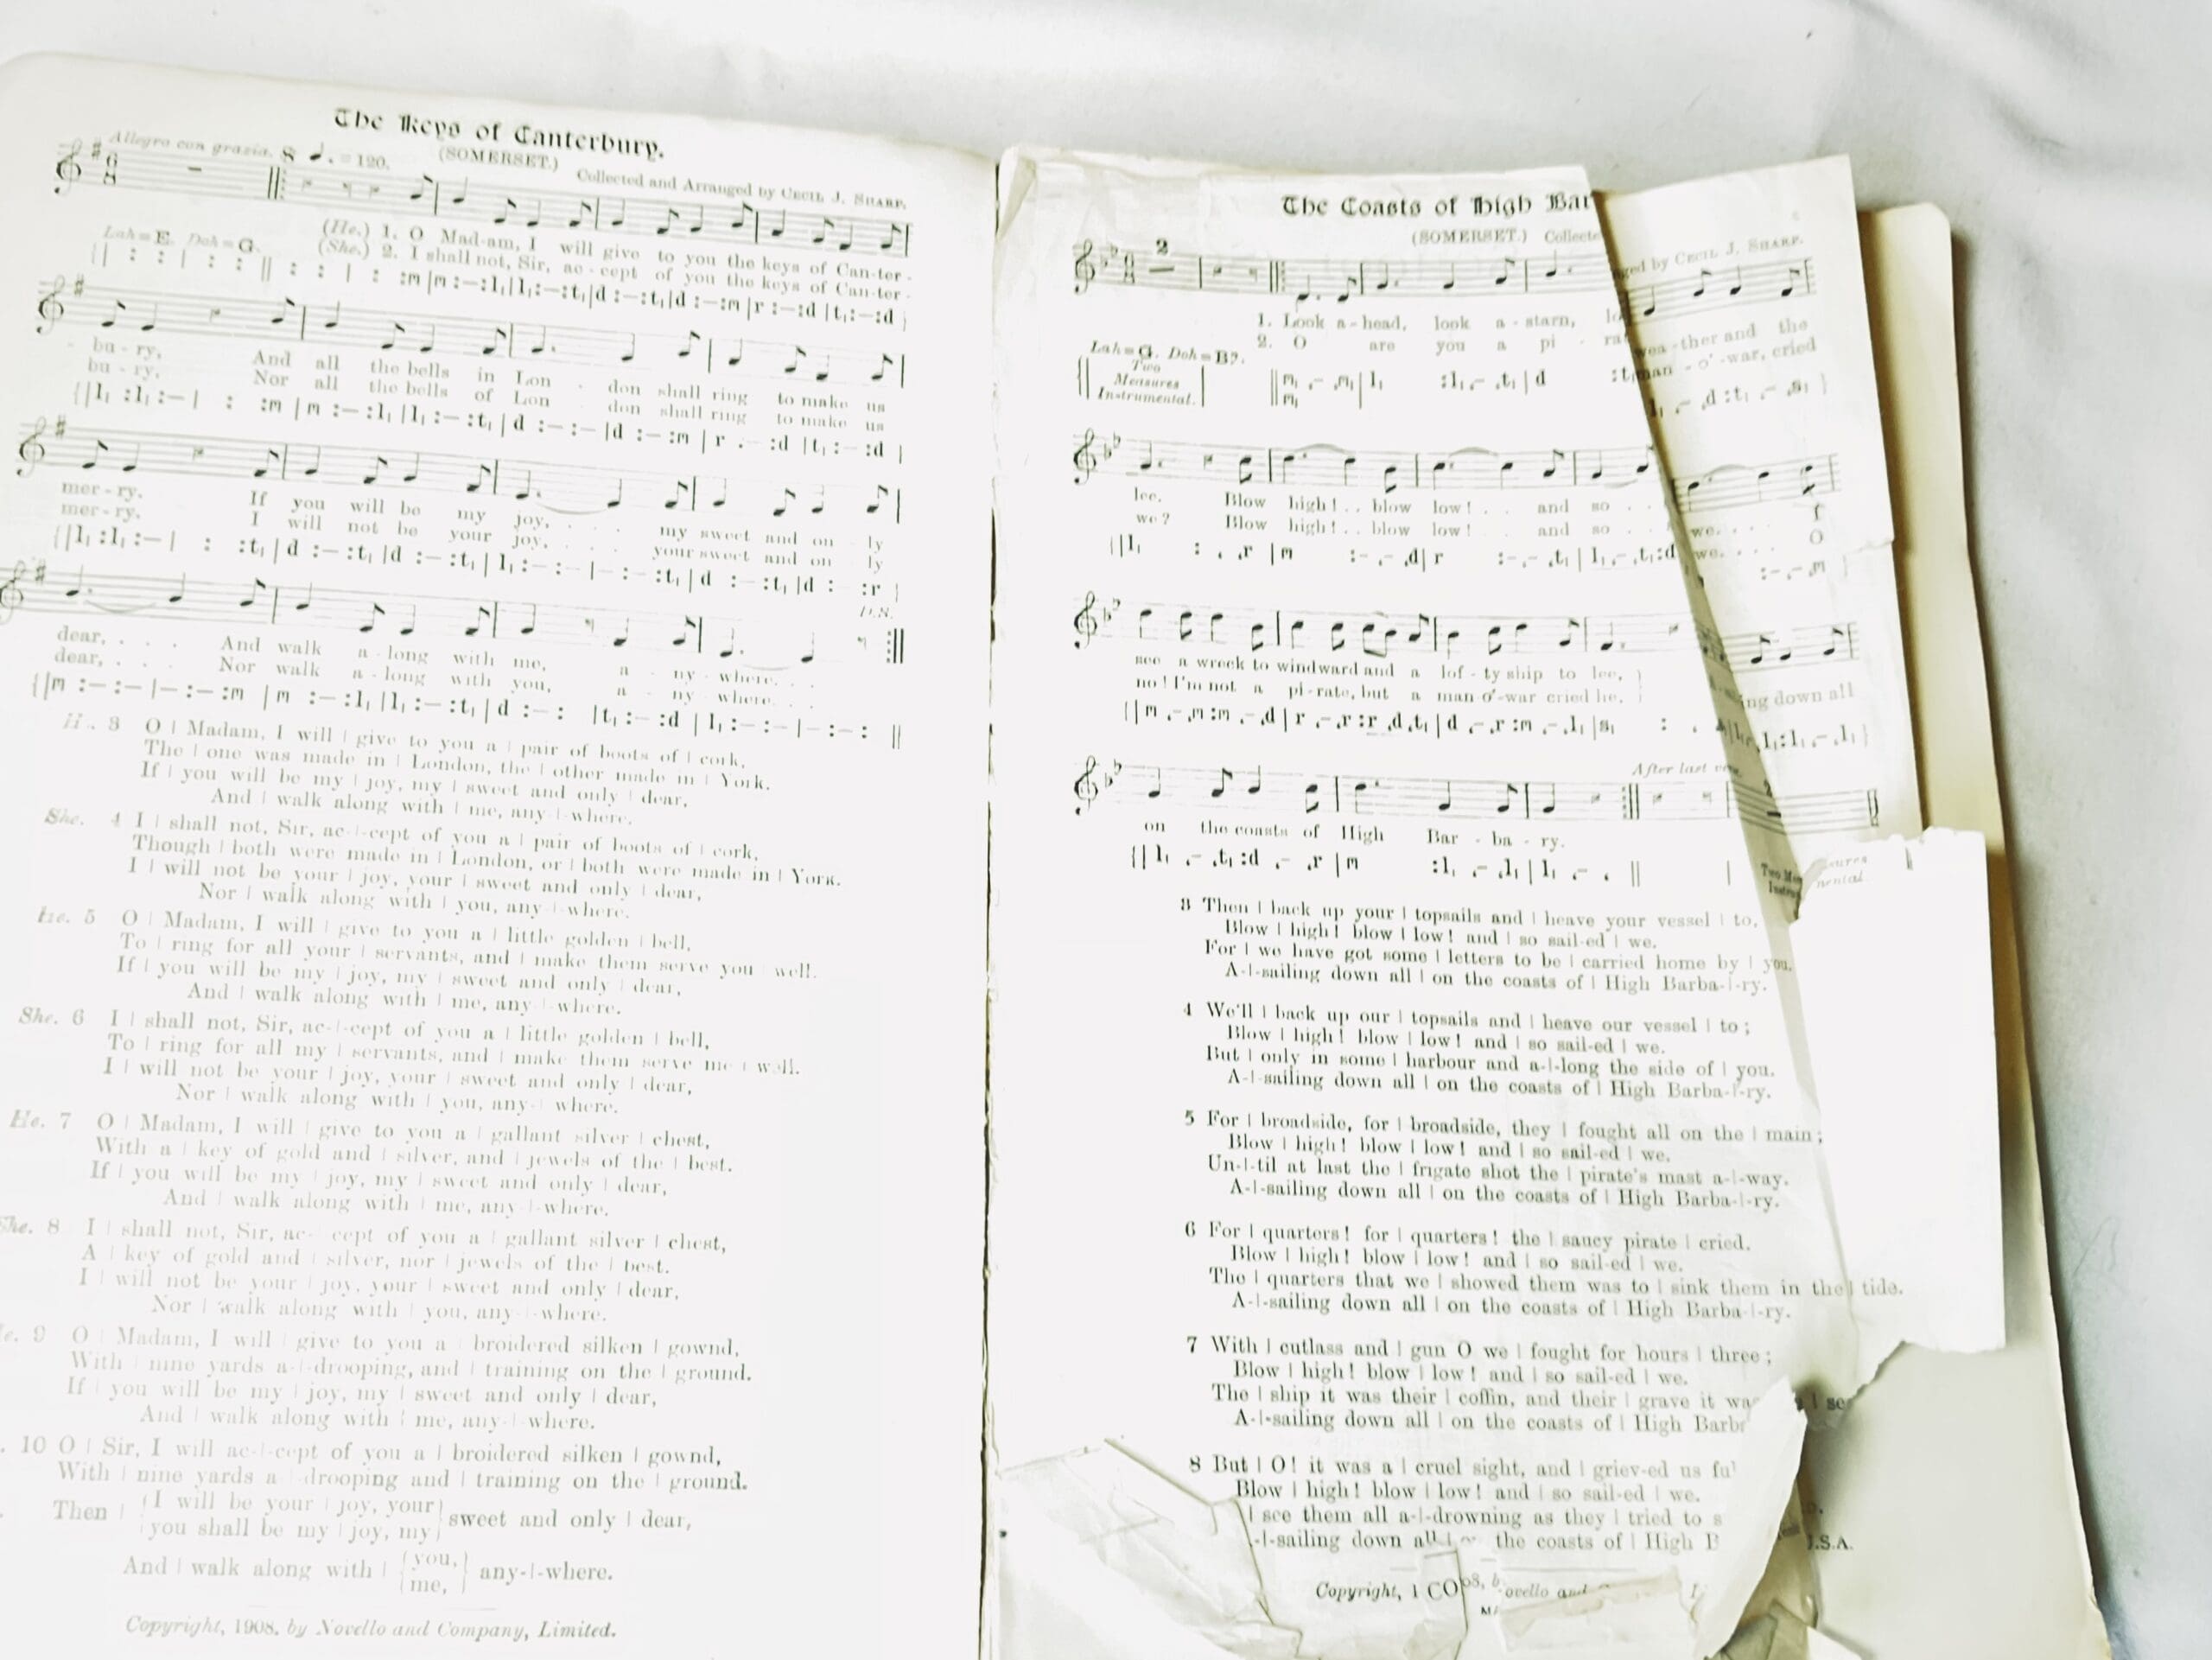 The Keys of Canterbury.
(SOMERSET.)
Allegro con grazia. = 120.
Collected and Arranged by CECIL J. SHARP.
(He.) 1. O Mad-am, I will give to you the keys of Can-ter-
(She.) 2. I shall not, Sir, ac-cept of you the keys of Can-ter-
Lah=E. Doh=G.
- bu-ry, And all the bells in Lon - don shall ring to make us
bu-ry, Nor all the bells of Lon - don shall ring to make us
mer-ry. If you will be my joy, . . . my sweet and on - ly
mer-ry. I will not be your joy, . . . your sweet and on - ly
D.S.
dear, . . . And walk a-long with me, a - ny - where. . .
dear, . . . Nor walk a-long with you, a - ny - where. . .
3 O | Madam, I will | give to you a | pair of boots of | cork,
The | one was made in | London, the | other made in | York.
If | you will be my | joy, my | sweet and only | dear,
And | walk along with | me, any-|-where.
She. 4 I | shall not, Sir, ac-|-cept of you a | pair of boots of | cork,
Though | both were made in | London, or | both were made in | York.
I | will not be your | joy, your | sweet and only | dear,
Nor | walk along with | you, any-|-where.
He. 5 O | Madam, I will | give to you a | little golden | bell,
To | ring for all your | servants, and | make them serve you | well.
If | you will be my | joy, my | sweet and only | dear,
And | walk along with | me, any-|-where.
She. 6 I | shall not, Sir, ac-|-cept of you a | little golden | bell,
To | ring for all my | servants, and | make them serve me | well.
I | will not be your | joy, your | sweet and only | dear,
Nor | walk along with | you, any-|-where.
He. 7 O | Madam, I will | give to you a | gallant silver | chest,
With a | key of gold and | silver, and | jewels of the | best.
If | you will be my | joy, my | sweet and only | dear,
And | walk along with | me, any-|-where.
She. 8 I | shall not, Sir, ac-|-cept of you a | gallant silver | chest,
A | key of gold and | silver, nor | jewels of the | best.
I | will not be your | joy, your | sweet and only | dear,
Nor | walk along with | you, any-|-where.
9 O | Madam, I will | give to you a | broidered silken | gownd,
With | nine yards a-|-drooping, and | training on the | ground.
If | you will be my | joy, my | sweet and only | dear,
And | walk along with | me, any-|-where.
10 O | Sir, I will ac-|-cept of you a | broidered silken | gownd,
With | nine yards a-|-drooping and | training on the | ground.
Then | {I will be your | joy, your} sweet and only | dear,
{you shall be my | joy, my}
And | walk along with | {you,} any-|-where.
{me,}
Copyright, 1908, by Novello and Company, Limited.
The Coasts of High Bar
(SOMERSET.) Collecte
ged by CECIL J. SHARP.
1. Look a-head, look a-starn, lo
wea-ther and the
2. O are you a pi - ra
man - o' -war, cried
Lah=G. Doh=B♭.
Two
Measures
Instrumental.
lee. Blow high! . . blow low! . . and so . . we. . . . I
we? Blow high! . . blow low! . . and so . . we. . . . O
see a wreck to windward and a lof-ty ship to lee,
ing down all
no! I'm not a pi-rate, but a man-o'-war cried he,
After last
on the coasts of High Bar - ba - ry.
3 Then | back up your | topsails and | heave your vessel | to,
Blow | high! blow | low! and | so sail-ed | we.
For | we have got some | letters to be | carried home by | you.
A-|-sailing down all | on the coasts of | High Barba-|-ry.
4 We'll | back up our | topsails and | heave our vessel | to;
Blow | high! blow | low! and | so sail-ed | we.
But | only in some | harbour and a-|-long the side of | you.
A-|-sailing down all | on the coasts of | High Barba-|-ry.
5 For | broadside, for | broadside, they | fought all on the | main;
Blow | high! blow | low! and | so sail-ed | we.
Un-|-til at last the | frigate shot the | pirate's mast a-|-way.
A-|-sailing down all | on the coasts of | High Barba-|-ry.
6 For | quarters! for | quarters! the | saucy pirate | cried.
Blow | high! blow | low! and | so sail-ed | we.
The | quarters that we | showed them was to | sink them in the | tide.
A-|-sailing down all | on the coasts of | High Barba-|-ry.
7 With | cutlass and | gun O we | fought for hours | three;
Blow | high! blow | low! and | so sail-ed | we.
The | ship it was their | coffin, and their | grave it wa
A-|-sailing down all | on the coasts of | High Barb
8 But | O! it was a | cruel sight, and | griev-ed us fu
Blow | high! blow | low! and | so sail-ed | we.
see them all a-|-drowning as they | tried to s
-|-sailing down all the coasts of | High B
.S.A.
Copyright, 1 ovello and